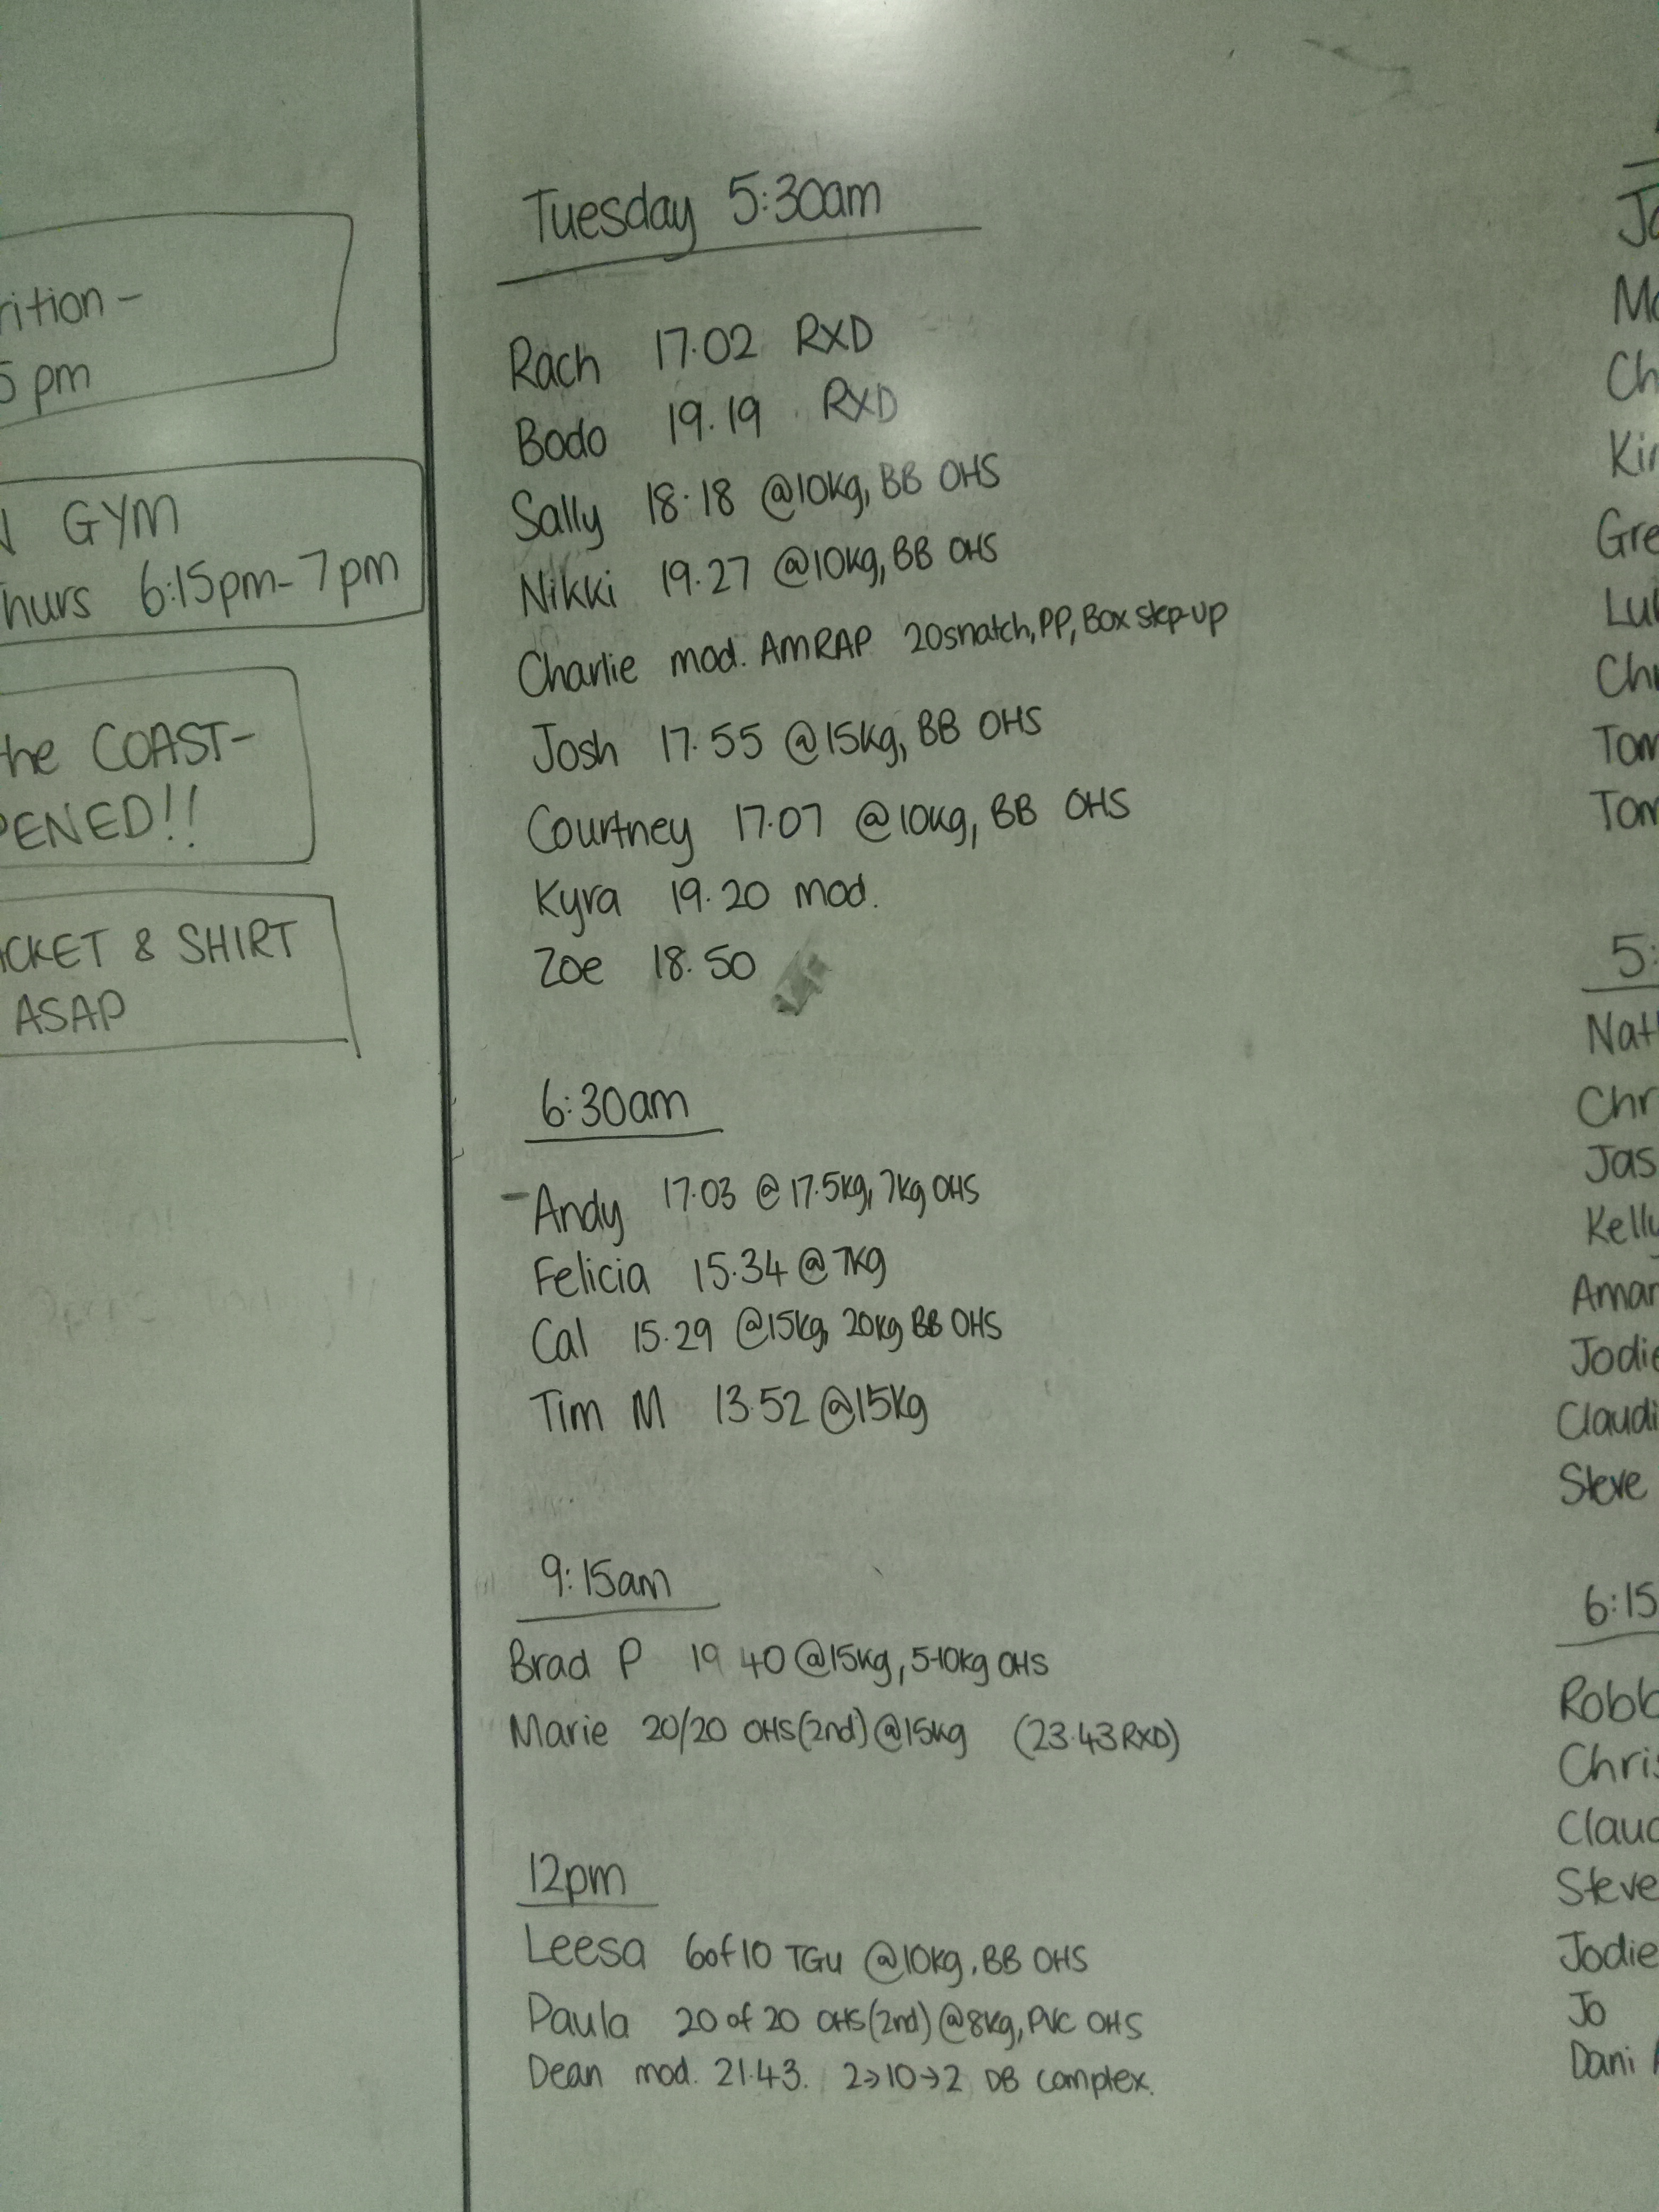 5 pm
GYM
6:15pm-7pm
the COAST-
& SHIRT
ASAP
Tuesday 5:30am
Rach 17.02 RXD
Bodo 19.19 RXD
Sally 18.18 @10kg, BB OHS
Nikki 19.27 @10kg, BB OHS
Charlie mod. AMRAP 20snatch, PP, Box step-up
Josh 17.55 @15kg, BB OHS
Courtney 17.07 @10kg, BB OHS
Kyra 19.20 mod.
Zoe 18.50
6:30am
- Andy 17.03 @ 17.5kg, 7kg OHS
Felicia 15.34 @ 7kg
Cal 15.29 @15kg, 20kg BB OHS
Tim M 13.52 @15kg
9:15am
Brad P 19 40 @15kg, 5-10kg OHS
Marie 20/20 OHS(2nd) @15kg (23.43 RXD)
12pm
Leesa 6of10 TGU @10kg, BB OHS
Paula 20 of 20 OHS(2nd) @8kg, PVC OHS
Dean mod. 21.43. 2→10→2 DB complex.
Steve
6:15
Steve
Jo
Dani